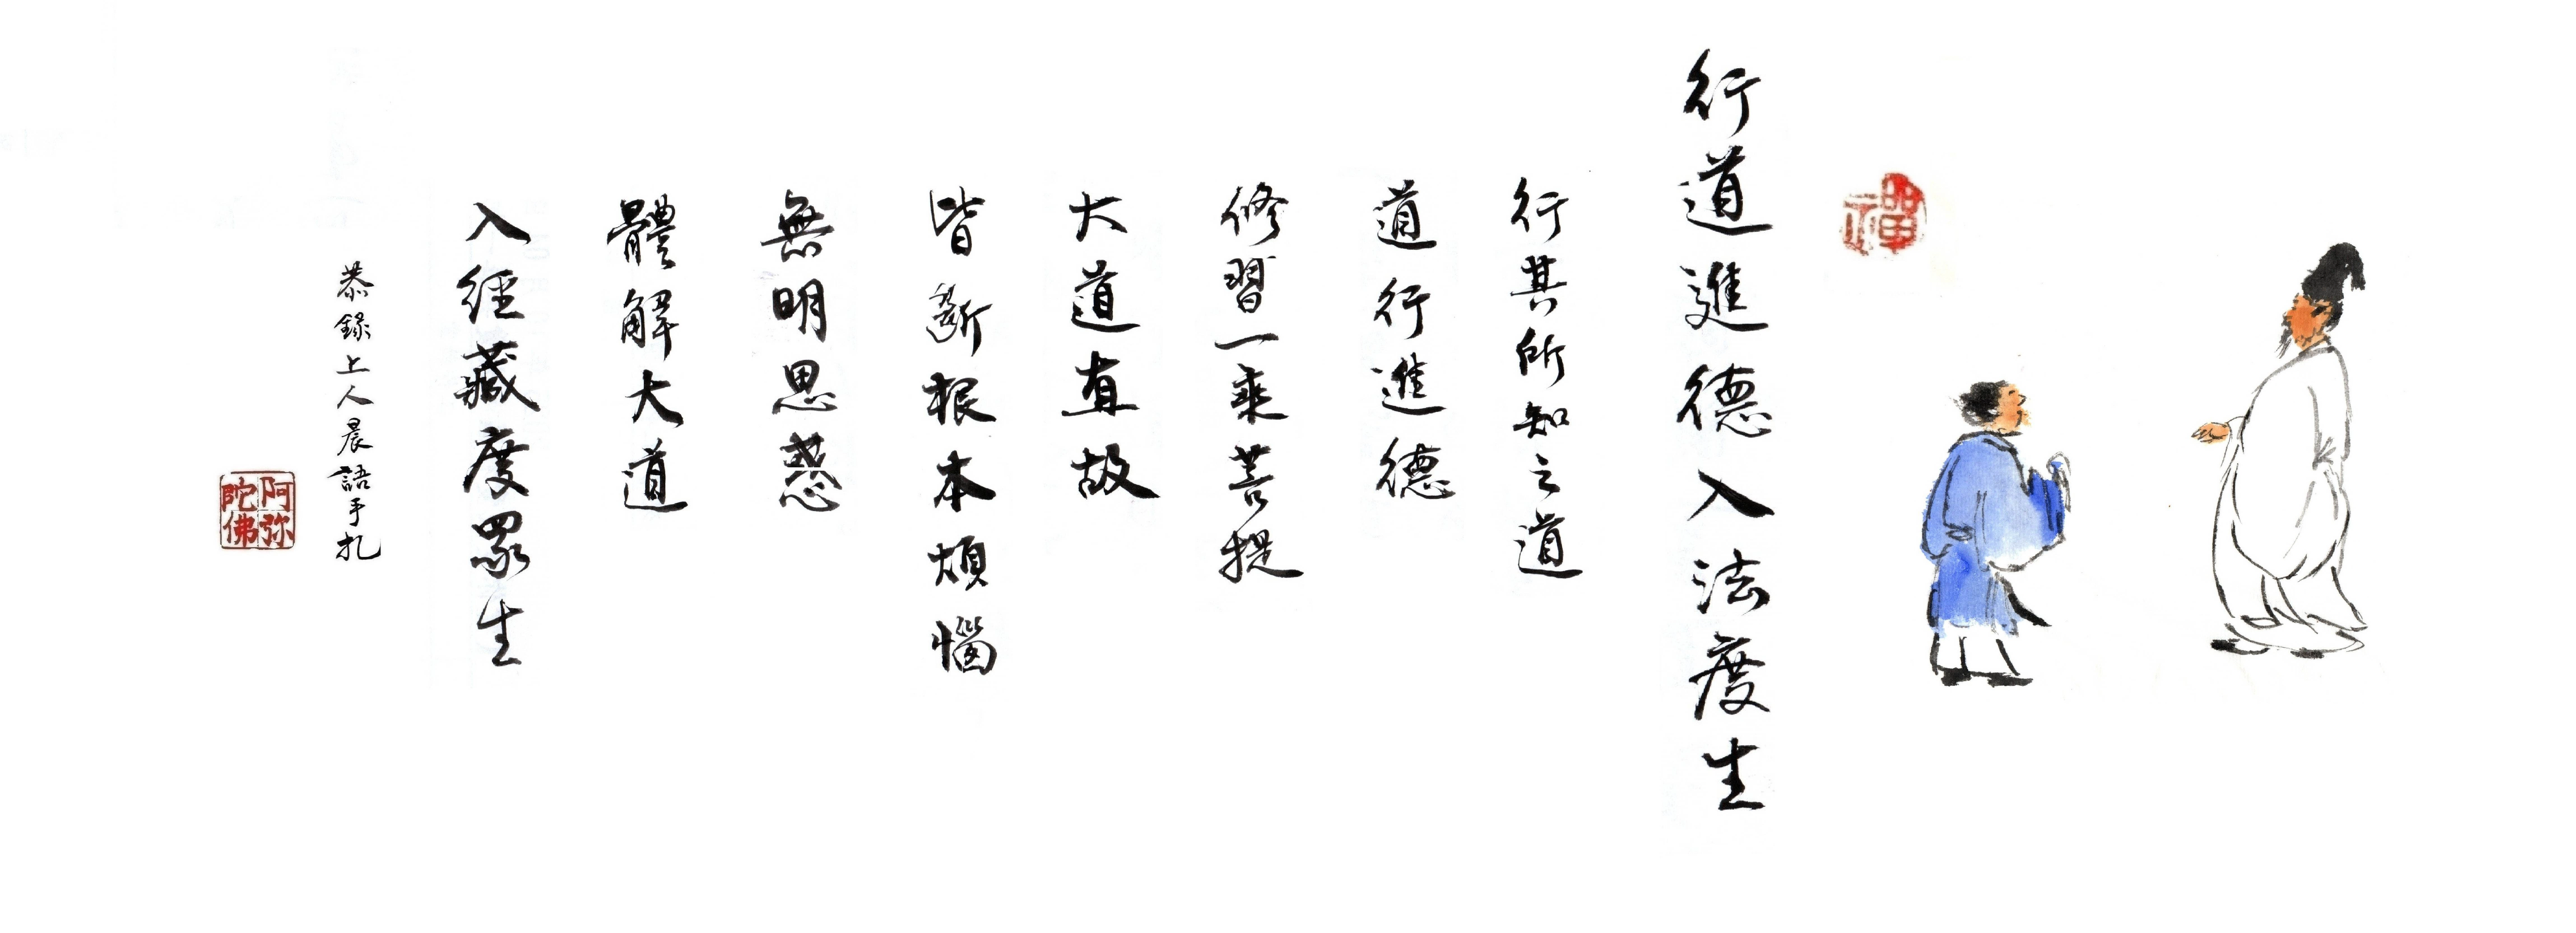 禪
行道進德入法度生
行其所知之道
道行進德
修習一乘菩提
大道直故
皆斷根本煩惱
無明思惑
體解大道
入經藏度眾生
恭錄上人晨語手札
阿弥
陀佛